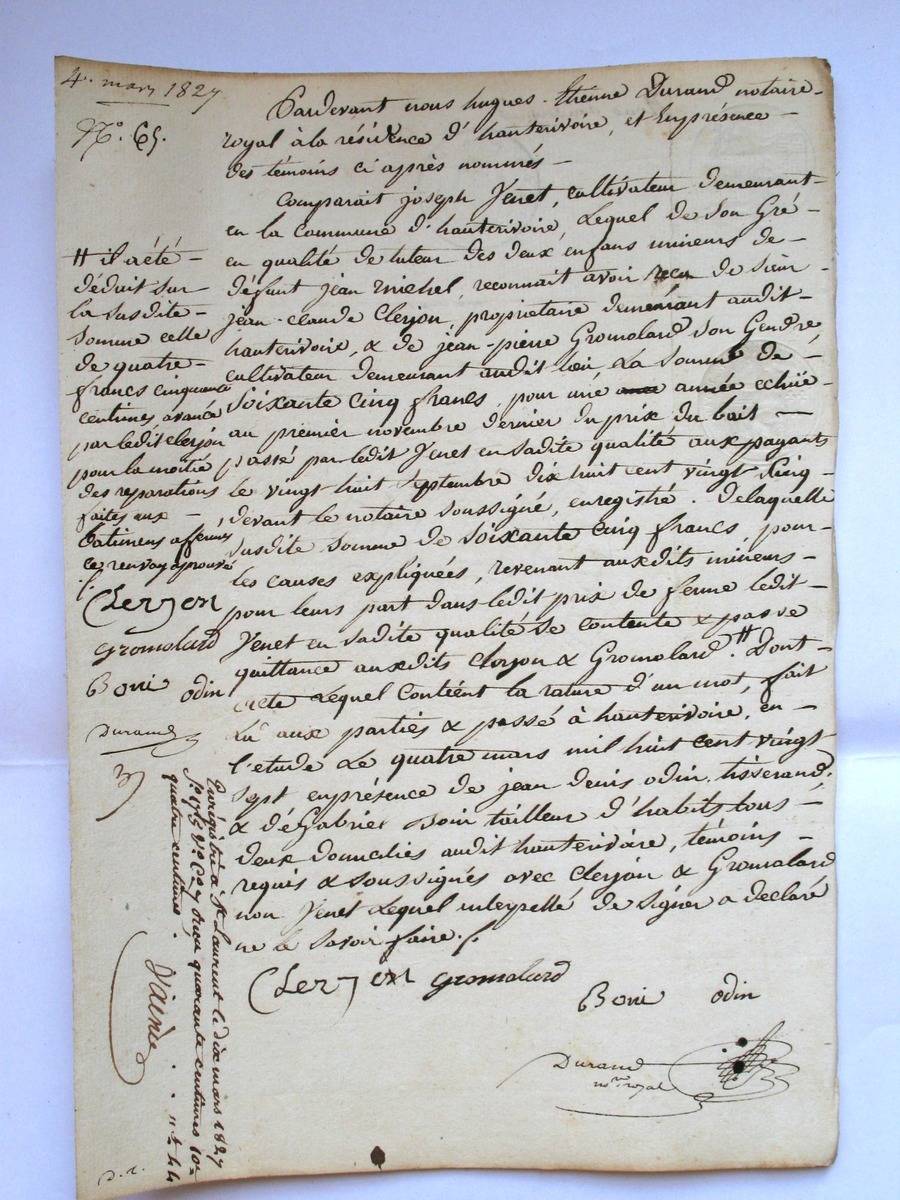 4. mars 1827
N.o 65.
Pardevant nous hugues-Etienne Durand notaire
royal à la résidence d'hauterivoire, et Enprésence
des témoins ci après nommés
Comparait joseph Venet, cultivateur demeurant
en la commune d'hauterivoire, Lequel de Son Gré
en qualité de tuteur des deux enfans mineurs de
défunt jean michel, reconnait avoir reçu de Sieur
jean-claude Clerjon, propriétaire demeurant audit
hauterivoire, & de jean-pierre Gromolard Son Gendre
cultivateur demeurant audit lieu, La Somme de
Soixante Cinq francs, pour une année echüe
au premier novembre dernier du prix du bail
passé par ledit Venet en Sadite qualité aux payants
le vingt huit Septembre dix huit cent vingt Cinq
devant le notaire soussigné, enregistré. Delaquelle
Susdite Somme de Soixante Cinq francs, pour
les causes expliquées, revenant auxdits mineurs
pour leurs part dans ledit prix de ferme ledit
Venet en Sadite qualité Se contente & passe
quittance auxdits Clerjon & Gromolard. # Dont
acte Lequel Contient la rature d'un mot, fait
Lu aux parties & passé à hauterivoire, en
l'etude Le quatre mars mil huit cent vingt
Sept enprésence de jean denis odin, tisserand,
& de Gabriel Boin tailleur d'habits tous
deux domiciliés audit hauterivoire, témoins
requis & Soussignés avec Clerjon & Gromolard
non Venet Lequel interpellé de Signer a declaré
ne le Savoir faire./.
Clerjon gromolard
odin
Durand
n.re royal
# il a été
déduit Sur
la Susdite
Somme celle
de quatre
francs cinquante
centimes avancé
par ledit Clerjon
pour la moitié
des reparations
faites aux
batimens affermés
ce renvoy aprouvé
./.
Clerjon
gromolard
odin
Durand
3
Enregistré a St Laurent le dix mars 1827
f.o 175 V.o C.e 7 reçu quarante centimes 10.e
quatre centimes